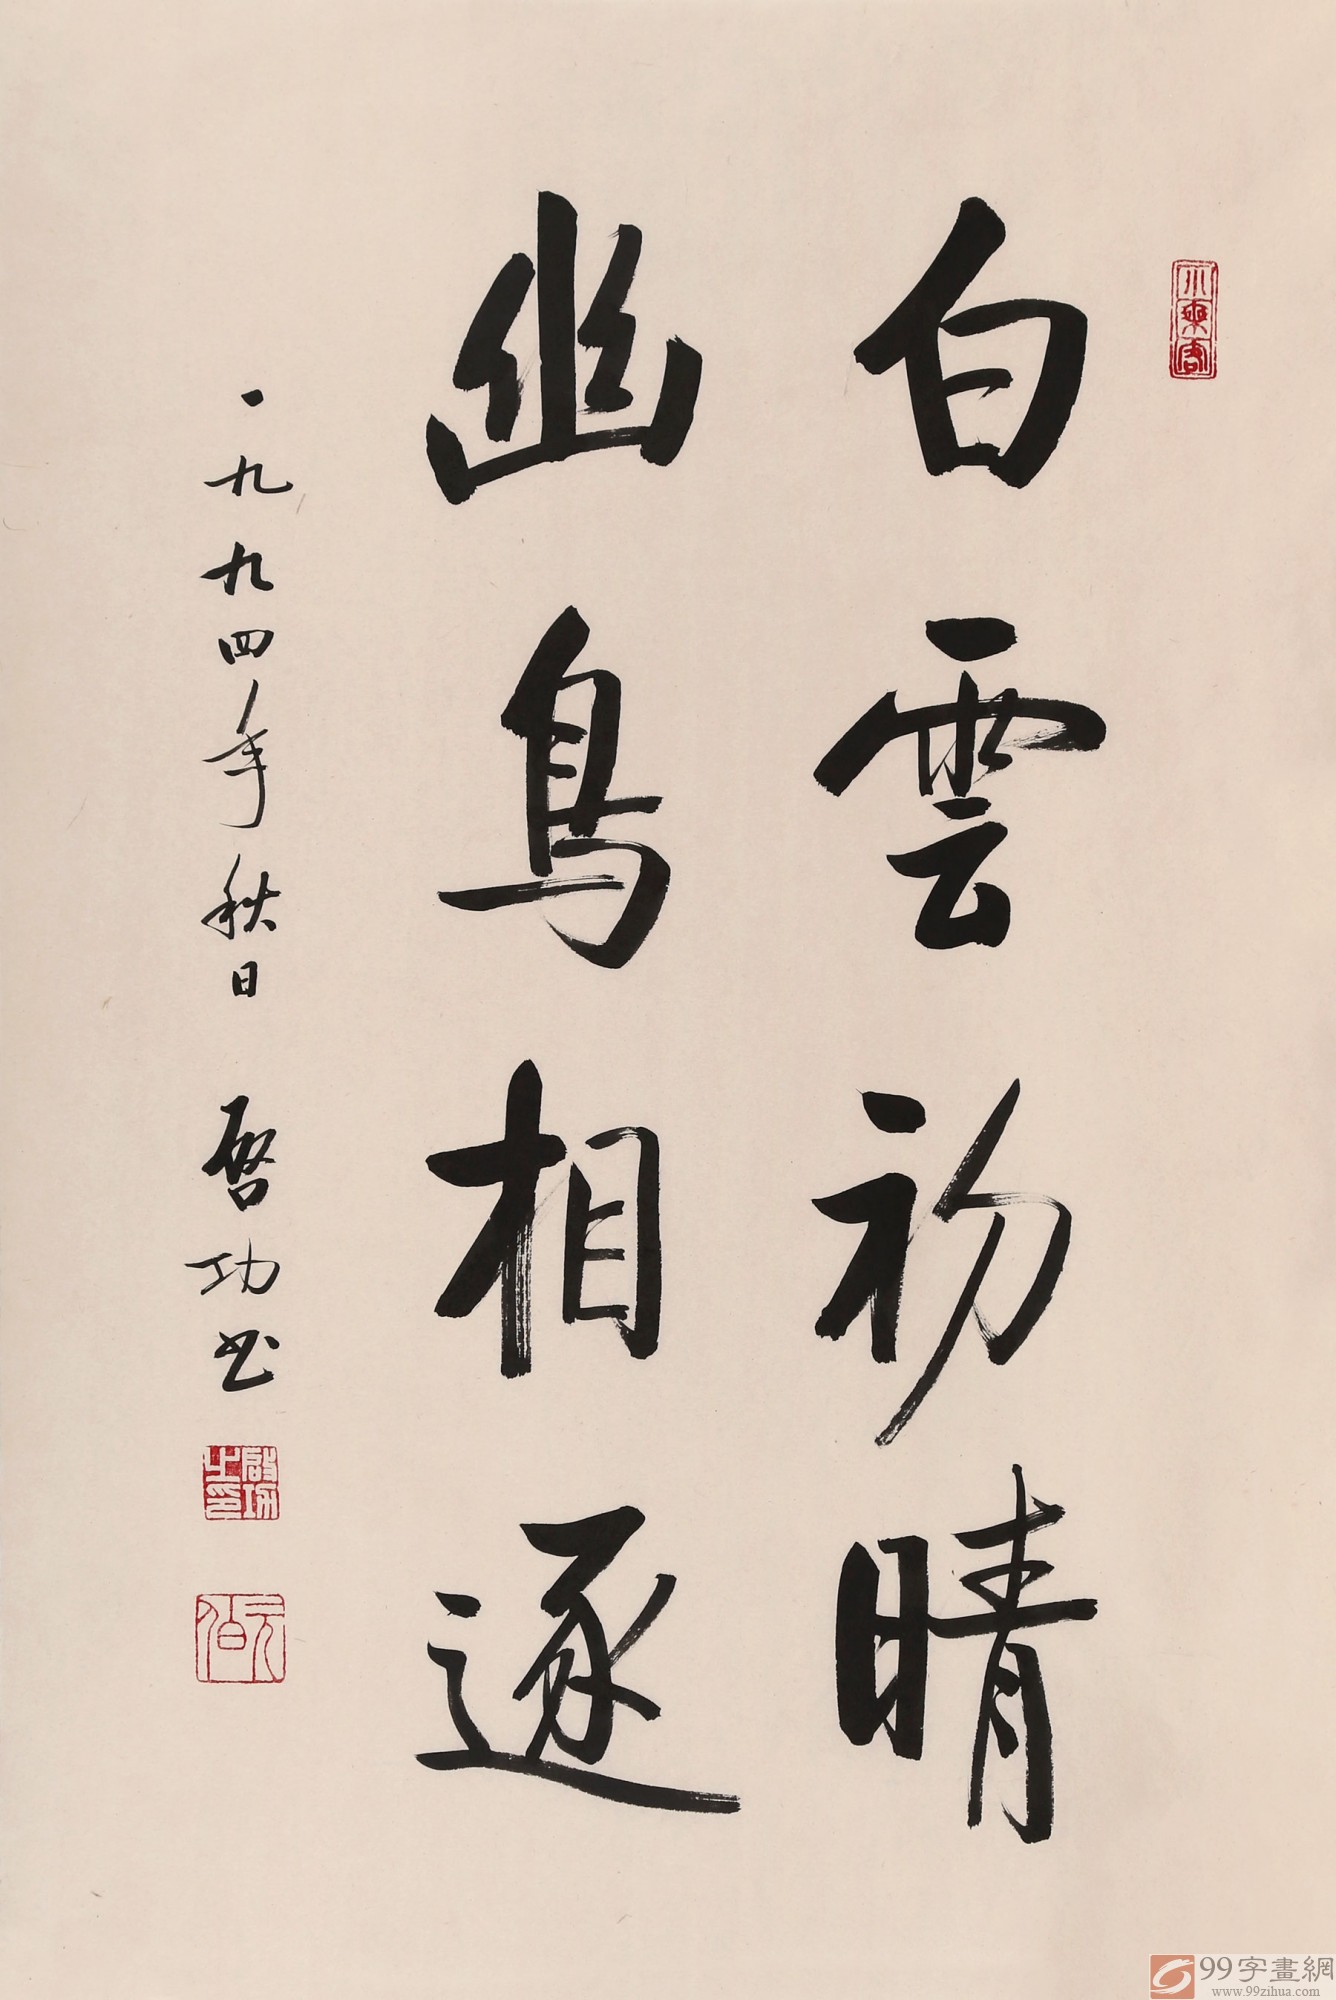 白雲初晴
幽鳥相逐
一九九四年秋日 啓功书
啟功之印
元白
99字畫網
www.99zihua.com